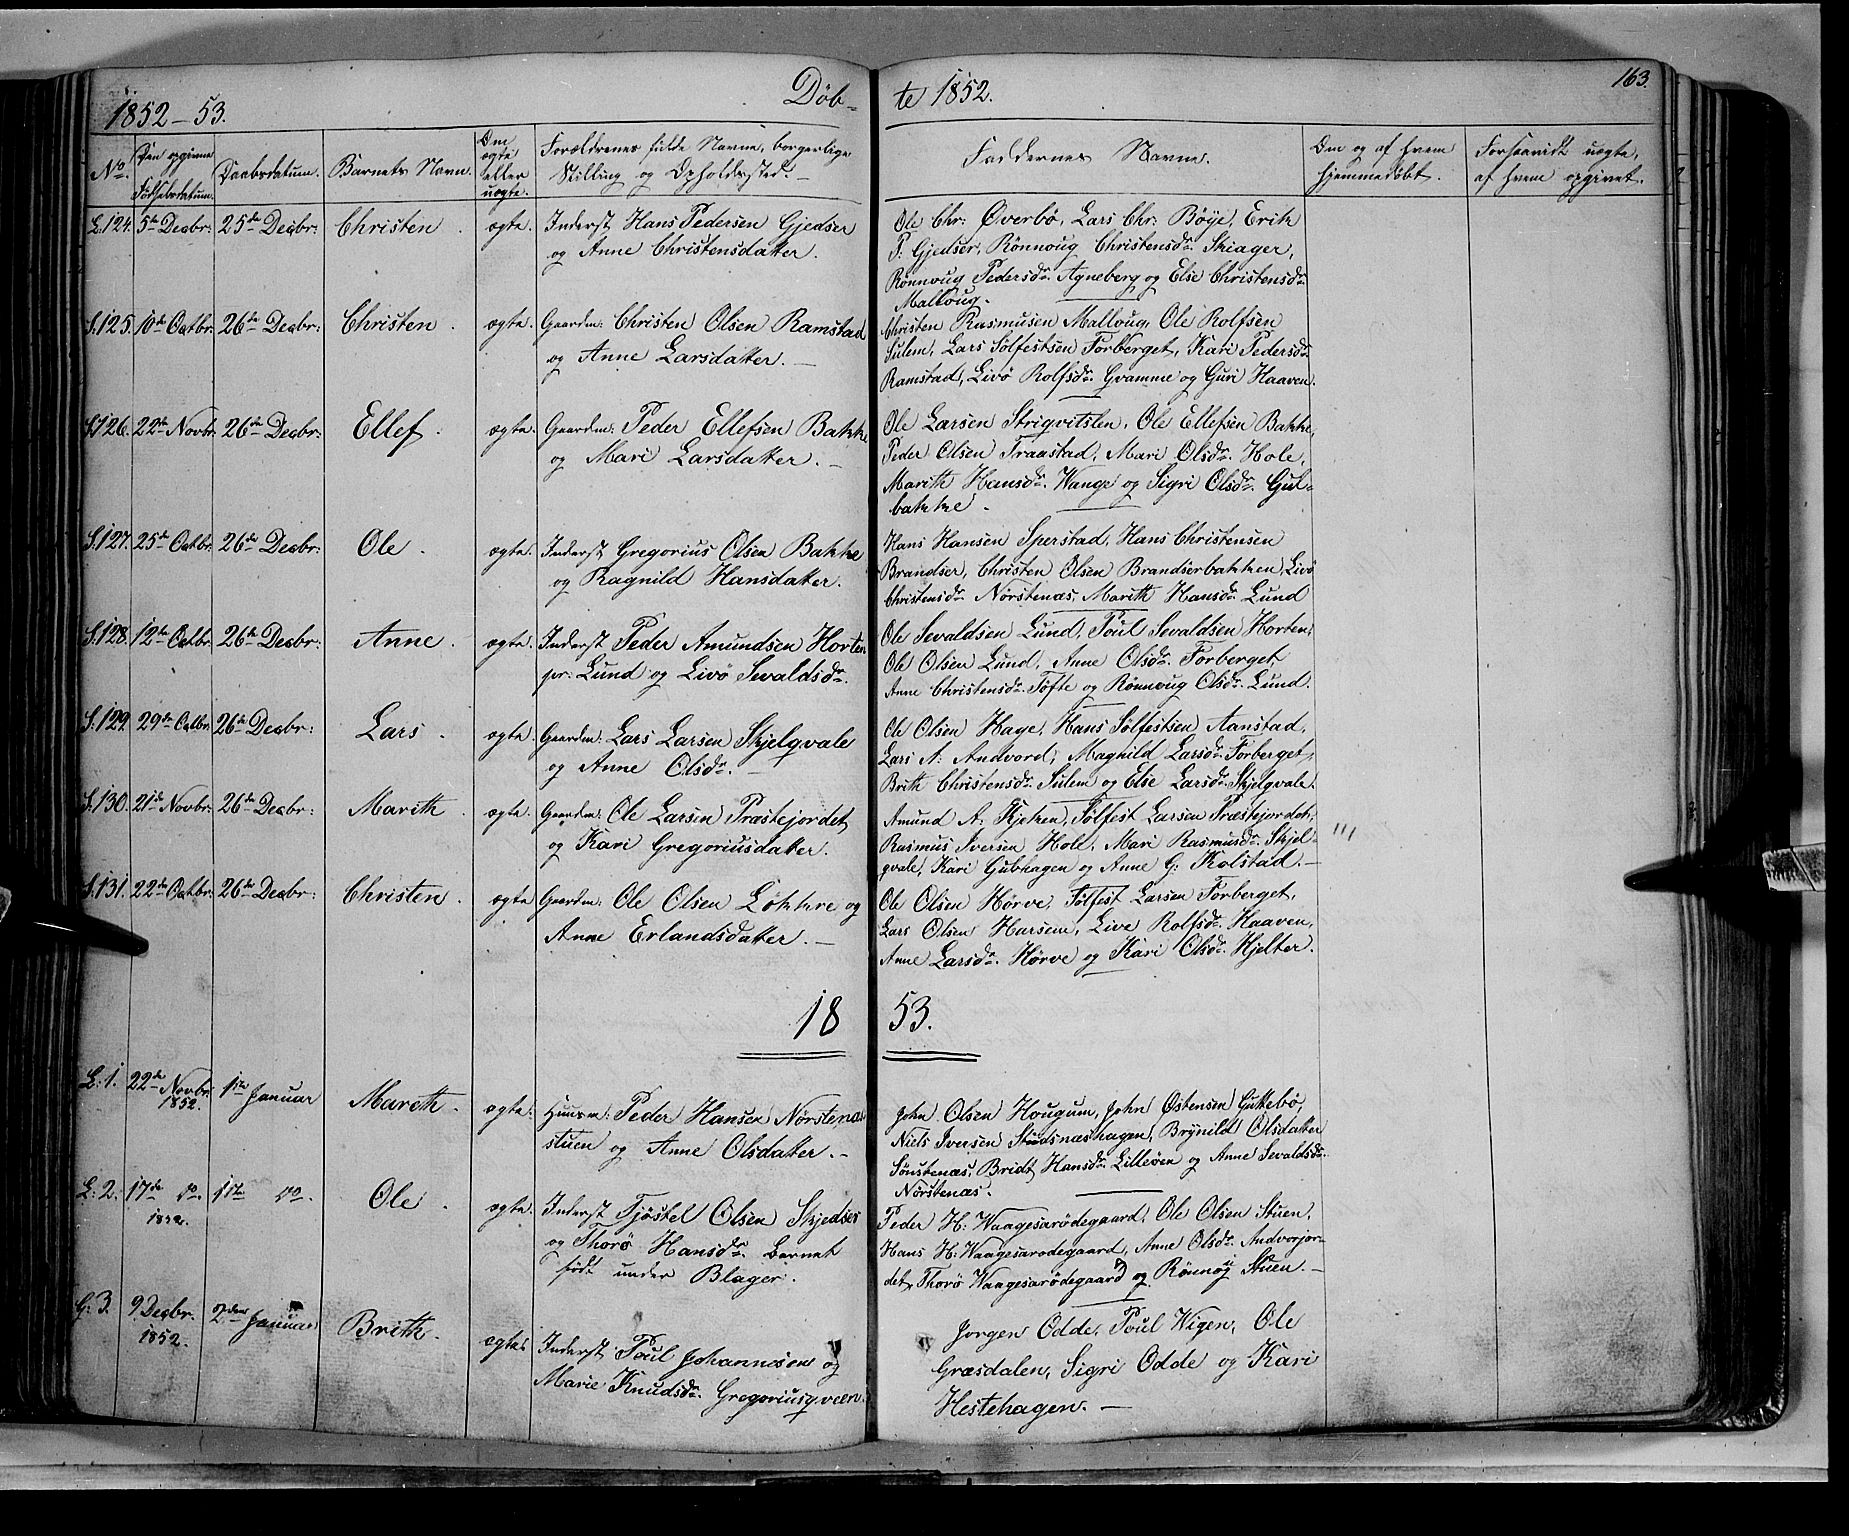 163.
1852-53.
Døb-
te 1852.
No.
Den opgivne Fødselsdatum.
Daabsdatum.
Barnets Navn.
Om ægte eller uægte.
Forældrenes fulde Navne, borgerlige Stilling og Opholdssted.
Faddernes Navne.
Om og af hvem hjemmedøbt.
Forsaavidt uægte, af hvem opgivet.
L.124. 5te Decbr: 25de Decbr: Christen. ægte. Inderst Hans Pedersen Gjedser
og Anne Christensdatter.
Ole Chr: Øverbø, Lars Chr: Bøye, Erik
P: Gjedser, Rønnoug Christensdr. Skiager,
Rønnoug Pedersdr. Agneberg og Else Christensdr.
Malloug.
S.125. 10de Octbr. 26de Decbr: Christen. ægte. Gaardm: Christen Olsen Ramstad
og Anne Larsdatter.
Christen Rasmusen Malloug, Ole Rolfsen
Sulem, Lars Sølfestsen Forberget, Kari Pedersdr.
Ramstad, Livø Rolfsdr. Gvamme og Guri Haaven.
S.126. 22de Novbr. 26de Decbr: Ellef. ægte. Gaardm: Peder Ellefsen Bakke
og Mari Larsdatter.
Ole Larsen Strigvitslen, Ole Ellefsen Bakke,
Peder Olsen Fraastad, Mari Olsdr. Hole,
Marith Hansdr. Wange og Sigri Olsdr. Gul-
bakke.
S.127. 25de Octbr. 26de Decbr: Ole. ægte. Inderst Gregorius Olsen Bakke
og Ragnild Hansdatter.
Hans Hansen Sperstad, Hans Christensen
Brandser, Christen Olsen Brandserbakken, Livø
Christensdr. Nørstenæs, Marith Hansdr. Lund
S.128. 12te Octbr. 26de Decbr: Anne. ægte. Inderst Peder Amundsen Horten
pr: Lund og Livø Sevaldsdr.
Ole Sevaldsen Lund, Poul Sevaldsen Horten,
Ole Olsen Lund, Anne Olsdr. Forberget,
Anne Christensdr. Tofte og Rønnoug Olsdr. Lund.
S.129. 29de Octbr. 26de Decbr: Lars. ægte. Gaardm: Lars Larsen Skjelqvale
og Anne Olsdr.
Ole Olsen Hage, Hans Sølfestsen Aanstad,
Lars A: Andvord, Magnild Larsdr. Forberget,
Brith Christensdr. Sulem og Else Larsdr. Skjelqvale.
S.130. 21de Novbr: 26de Decbr: Marith. ægte. Gaardm: Ole Larsen Præstejordet,
og Kari Gregoriusdatter.
Amund A: Kjeken, Sølfest Larsen Præstejordet,
Rasmus Iversen Hole, Mari Rasmusdr. Skjel-
qvale, Kari Gubhagen og Anne G: Kolstad.
S.131. 22de Octbr: 26de Decbr: Christen. ægte Gaardm: Ole Olsen Løkkre og
Anne Erlandsdatter.
Ole Olsen Hørve, Sølfest Larsen Forberget,
Lars Olsen Harsem, Live Rolfsdr. Haaven,
Anne Larsdr. Hørve og Kari Olsdr. Hjelter.
18 53.
L:1. 22de Novbr. 1852. 1ste Januar Mareth. ægte. Huusm: Peder Hansen Nørstenæs
stuen og Anne Olsdatter.
John Olsen Hougum, John Østensen Guttebø,
Niels Iversen Studsnæshagen, Brynild Olsdatter
Sønstenæs, Bridt Hansdr. Lilleøen og Anne Sevaldsdr.
Nørstenæs.
L:2. 17de do. 1852. 1ste do. Ole. ægte. Inderst Tjøstel Olsen Skjedser
og Thorø Hansdr. Barnet
født under Blager.
Peder H: Waagesarødegaard, Ole Olsen Stuen,
Hans H: Waagesarødegaard, Anne Olsdr. Andvorjor-
det, Thorø Waagesarødegaard og Rønnøy Stuen.
G:3. 9 Decbr. 1852. 2den Januar Brith. ægte Inderst Poul Johannesen og
Marie Knudsdr. Gregoriusqveen.
Jorgen Odde, Poul Wigen, Ole
Græsdalen, Sigri Odde og Kari
Hestehagen.